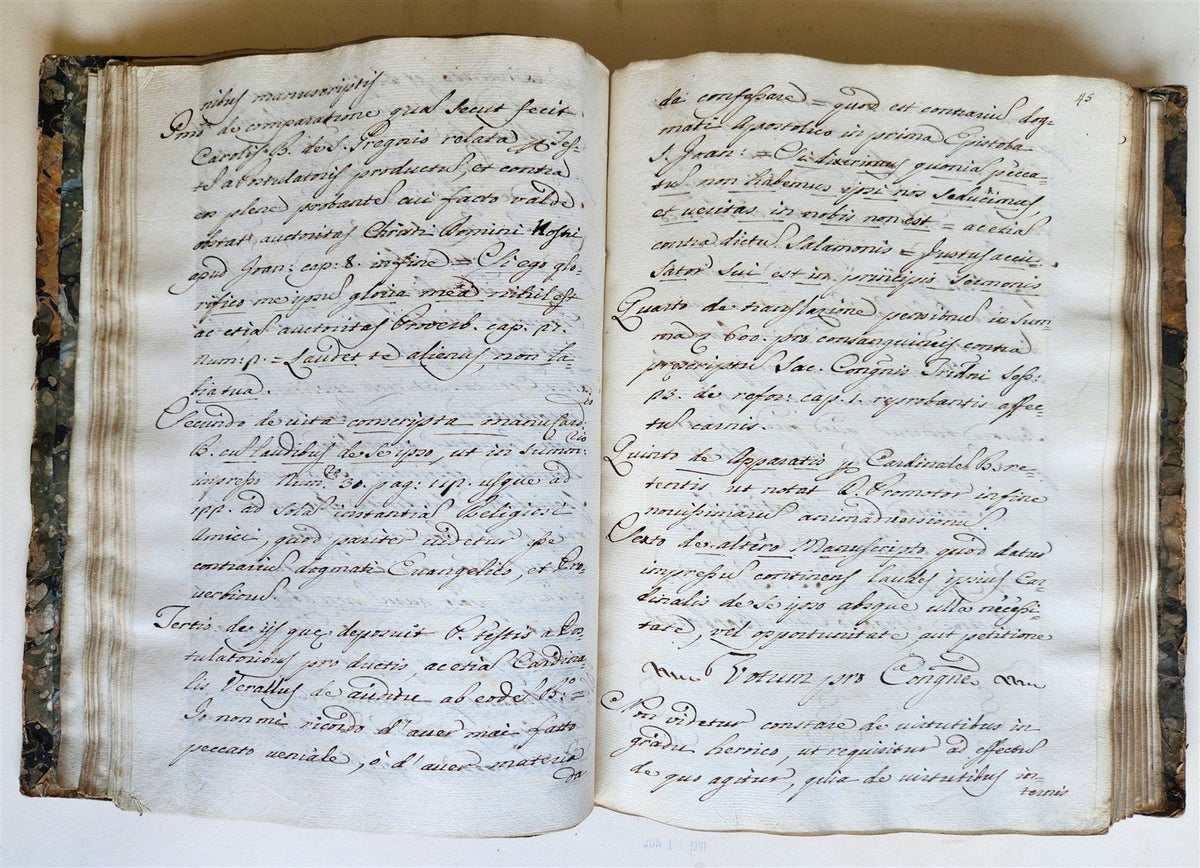 nibus manuscriptis
Primo de comparatione quas secus fecit
Carolus B. de S. Gregorio relata
tes a Postulatoribus productus, et contra
plene probante cui facto valde
obstat auctoritas Christi Domini Nostri
apud Joan: cap: 8. in fine = Si ego glo-
rifico me ipsus gloria mea nihil est
ac etias auctoritas Proverb. cap. 27.
num: 2. = Laudet te alienus, non la-
bia tua.
Secundo de vita conscripta manu
B. cus laudibus de se ipso, ut in Summ:
impress num: 30. pag: 112. usque ad
122. ad solas instantias Religiosi
Amici, quod pariter videtur
contrarius dogmati Evangelico, et Pro-
verbiorus.
Tertio de ijs que deposuit P. testis a Pos-
tulatoribus productis, ac etias Cardina-
lis Verallus de auditu ab eode =
Io non mi ricordo d'aver mai fatto
peccato veniale, o d'aver materia
da
45
da confessare = quod est contrarius dog-
mati Apostolico in prima Epistola
S. Joan: = Si dixerimus quonias pecca-
tus non habemus ipsi nos seducimus,
et veritas in nobis non est = ac etias
contra dictus Salamonis = Justus accu-
sator sui est in principio sermonis
Quarto de translatione pensionus in sum-
ma 600. pro consanguineis contra
prescriptus Sac. Congnis Tridni sess:
23. de refor: cap. 1. reprobantis affec-
tus carnis.
Quinto de Apparatis Cardinales B. re-
tentis ut notat R. Promotor in fine
novissimarus animadversionus.
Sexto de altero Manuscripto quod datur
impressus continens laudes ipsius Car-
dinalis de se ipso absque ulla necessi-
tate, vel opportunitate aut petitione
Votum pro Congne
Non videtur constare de virtutibus in
gradu heroico, ut requiritur ad effectus
de quo agitur, quia de virtutibus in-
ternis
JUN 1991